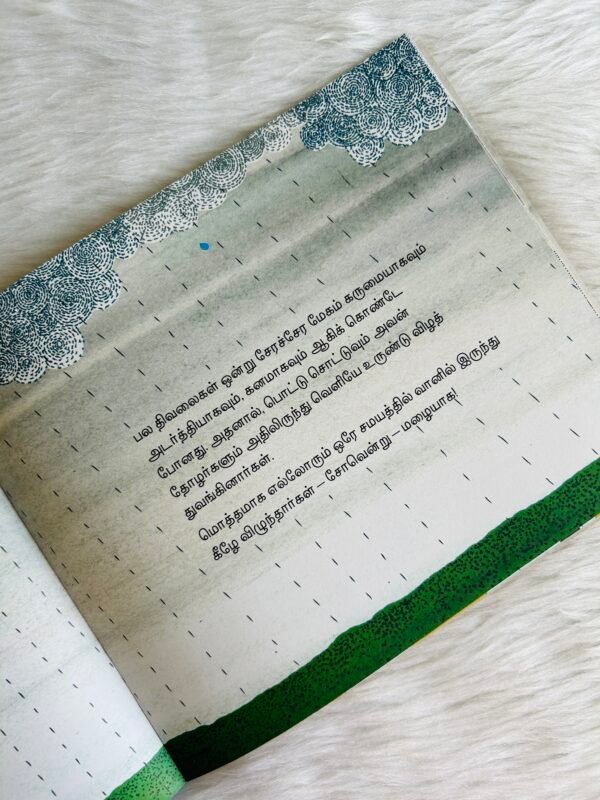 பல திவலைகள் ஒன்று சேரச்சேர மேகம் கருமையாகவும்
அடர்த்தியாகவும், கனமாகவும் ஆகிக் கொண்டே
போனது. அதனால், பொட்டு கொட்டுவும் அவன்
தோழர்களும் அதிலிருந்து வெளியே உருண்டு விழத்
துவங்கினார்கள்.
மொத்தமாக எல்லோரும் ஒரே சமயத்தில் வானில் இருந்து
கீழே விழுந்தார்கள் – சோவென்று – மழையாக!